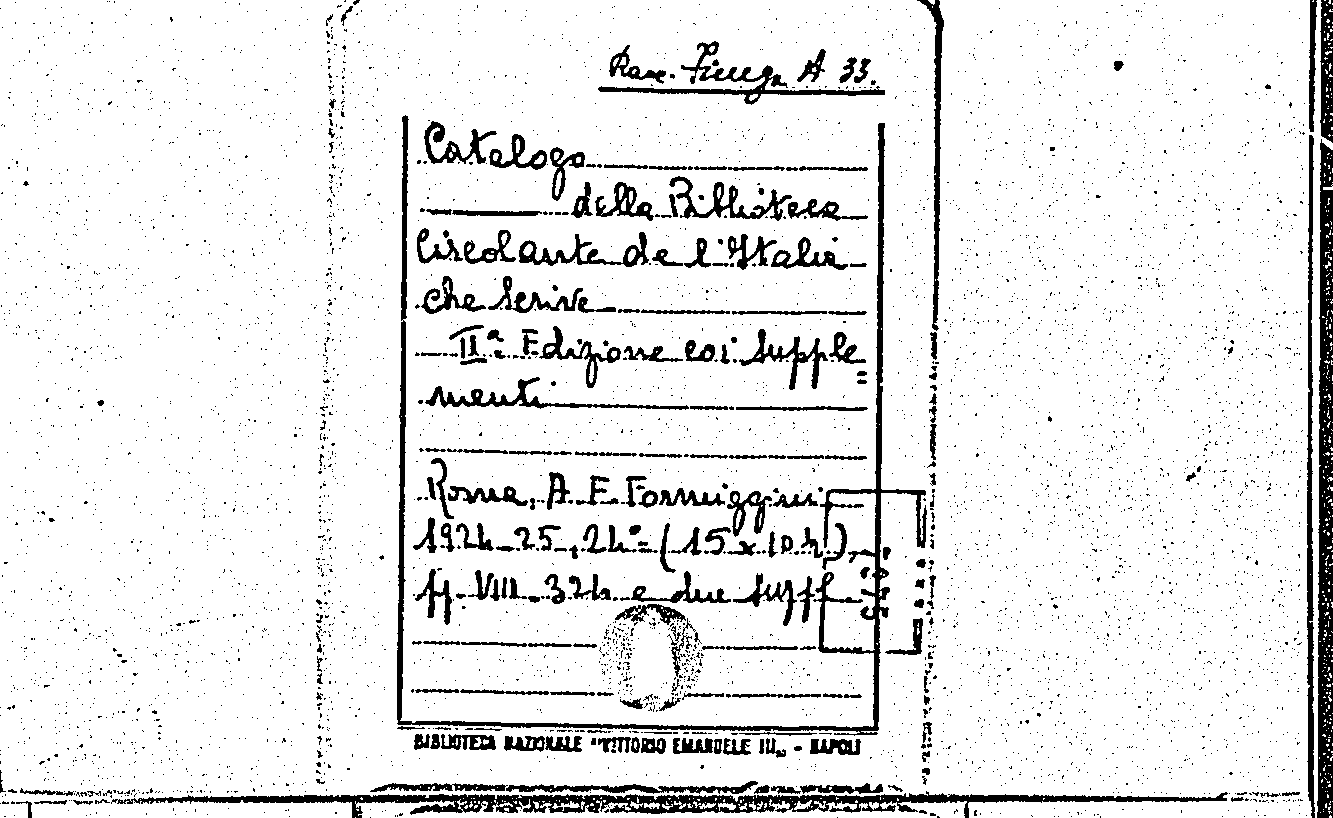 Racc. A 33.
Catalogo
della Biblioteca
Circolante de l'Italia
che scrive
IIª Edizione coi supple=
menti
Roma, A. F. Formiggini
1924-25, 24°= (15 x 10 ½),
pp. VIII-324 e due suppl.
BIBLIOTECA NAZIONALE "VITTORIO EMANUELE III„ - NAPOLI